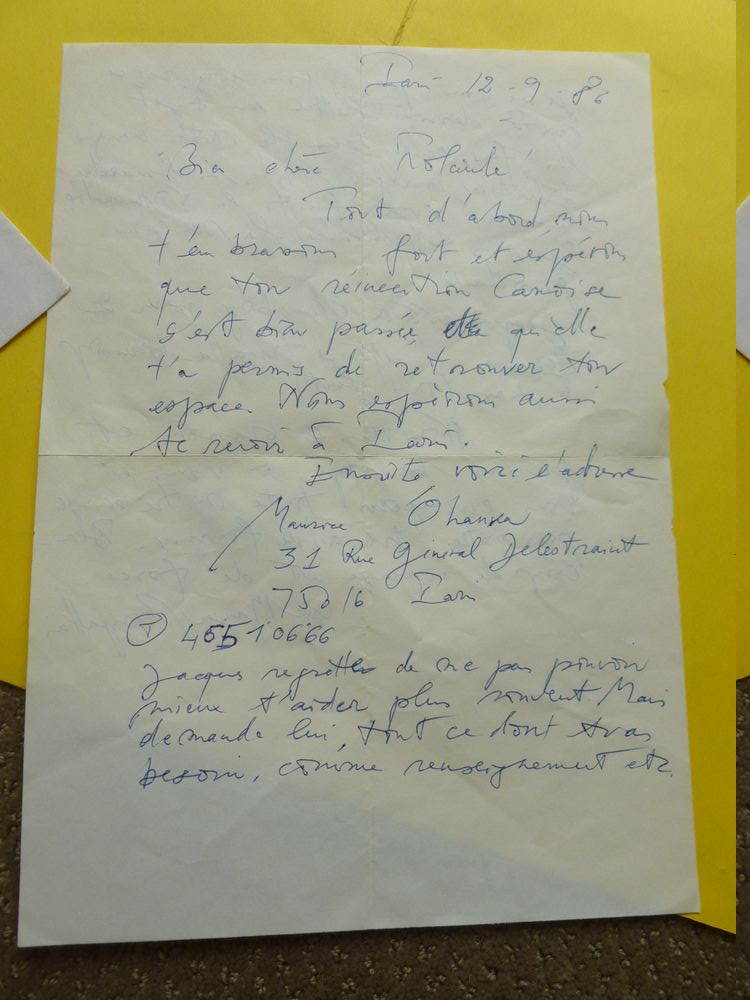 Paris 12-9-86
Bien chère Rolande
Tout d'abord, nous
t'embrassons fort et espérons
que ton réinsertion Cannoise
s'est bien passée, qu'elle
t'a permis de retrouver ton
espace. Nous espérons aussi
te revoir à Paris.
Ensuite, voici l'adresse
Maurice Ohana
31 Rue Général Delestraint
75016 Paris
T 45510666
Jacques regrette de ne pas pouvoir
mieux t'aider plus souvent. Mais
demande lui, tout ce dont t'as
besoin, comme renseignement etc.